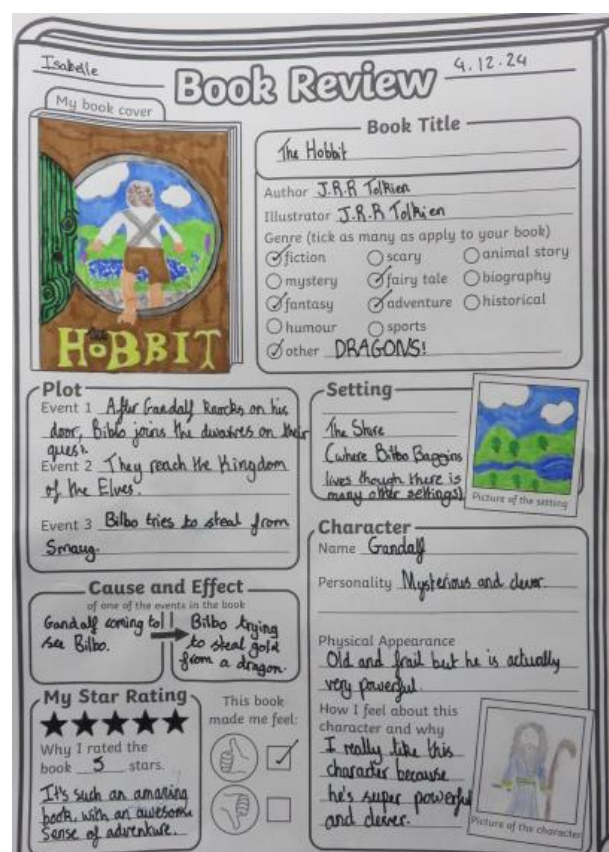 Isabelle
Book Review
4.12.24
My book cover
the
HOBBIT
Book Title
The Hobbit
Author J.R.R Tolkien
Illustrator J.R.R Tolkien
Genre (tick as many as apply to your book)
fiction scary animal story
mystery fairy tale biography
fantasy adventure historical
humour sports
other DRAGONS!
Plot
Event 1 After Gandalf knocks on his
door, Bilbo joins the dwarves on their
quest.
Event 2 They reach the Kingdom
of the Elves.
Event 3 Bilbo tries to steal from
Smaug.
Setting
The Shire
(where Bilbo Baggins
lives though there is
many other settings)
Picture of the setting
Cause and Effect
of one of the events in the book
Gandalf coming to
see Bilbo.
Bilbo trying
to steal gold
from a dragon.
Character
Name Gandalf
Personality Mysterious and clever
Physical Appearance
Old and frail but he is actually
very powerful.
How I feel about this
character and why
I really like this
character because
he's super powerful
and clever.
Picture of the character
My Star Rating
Why I rated the
book 5 stars.
It's such an amazing
book, with an awesome
sense of adventure.
This book
made me feel: